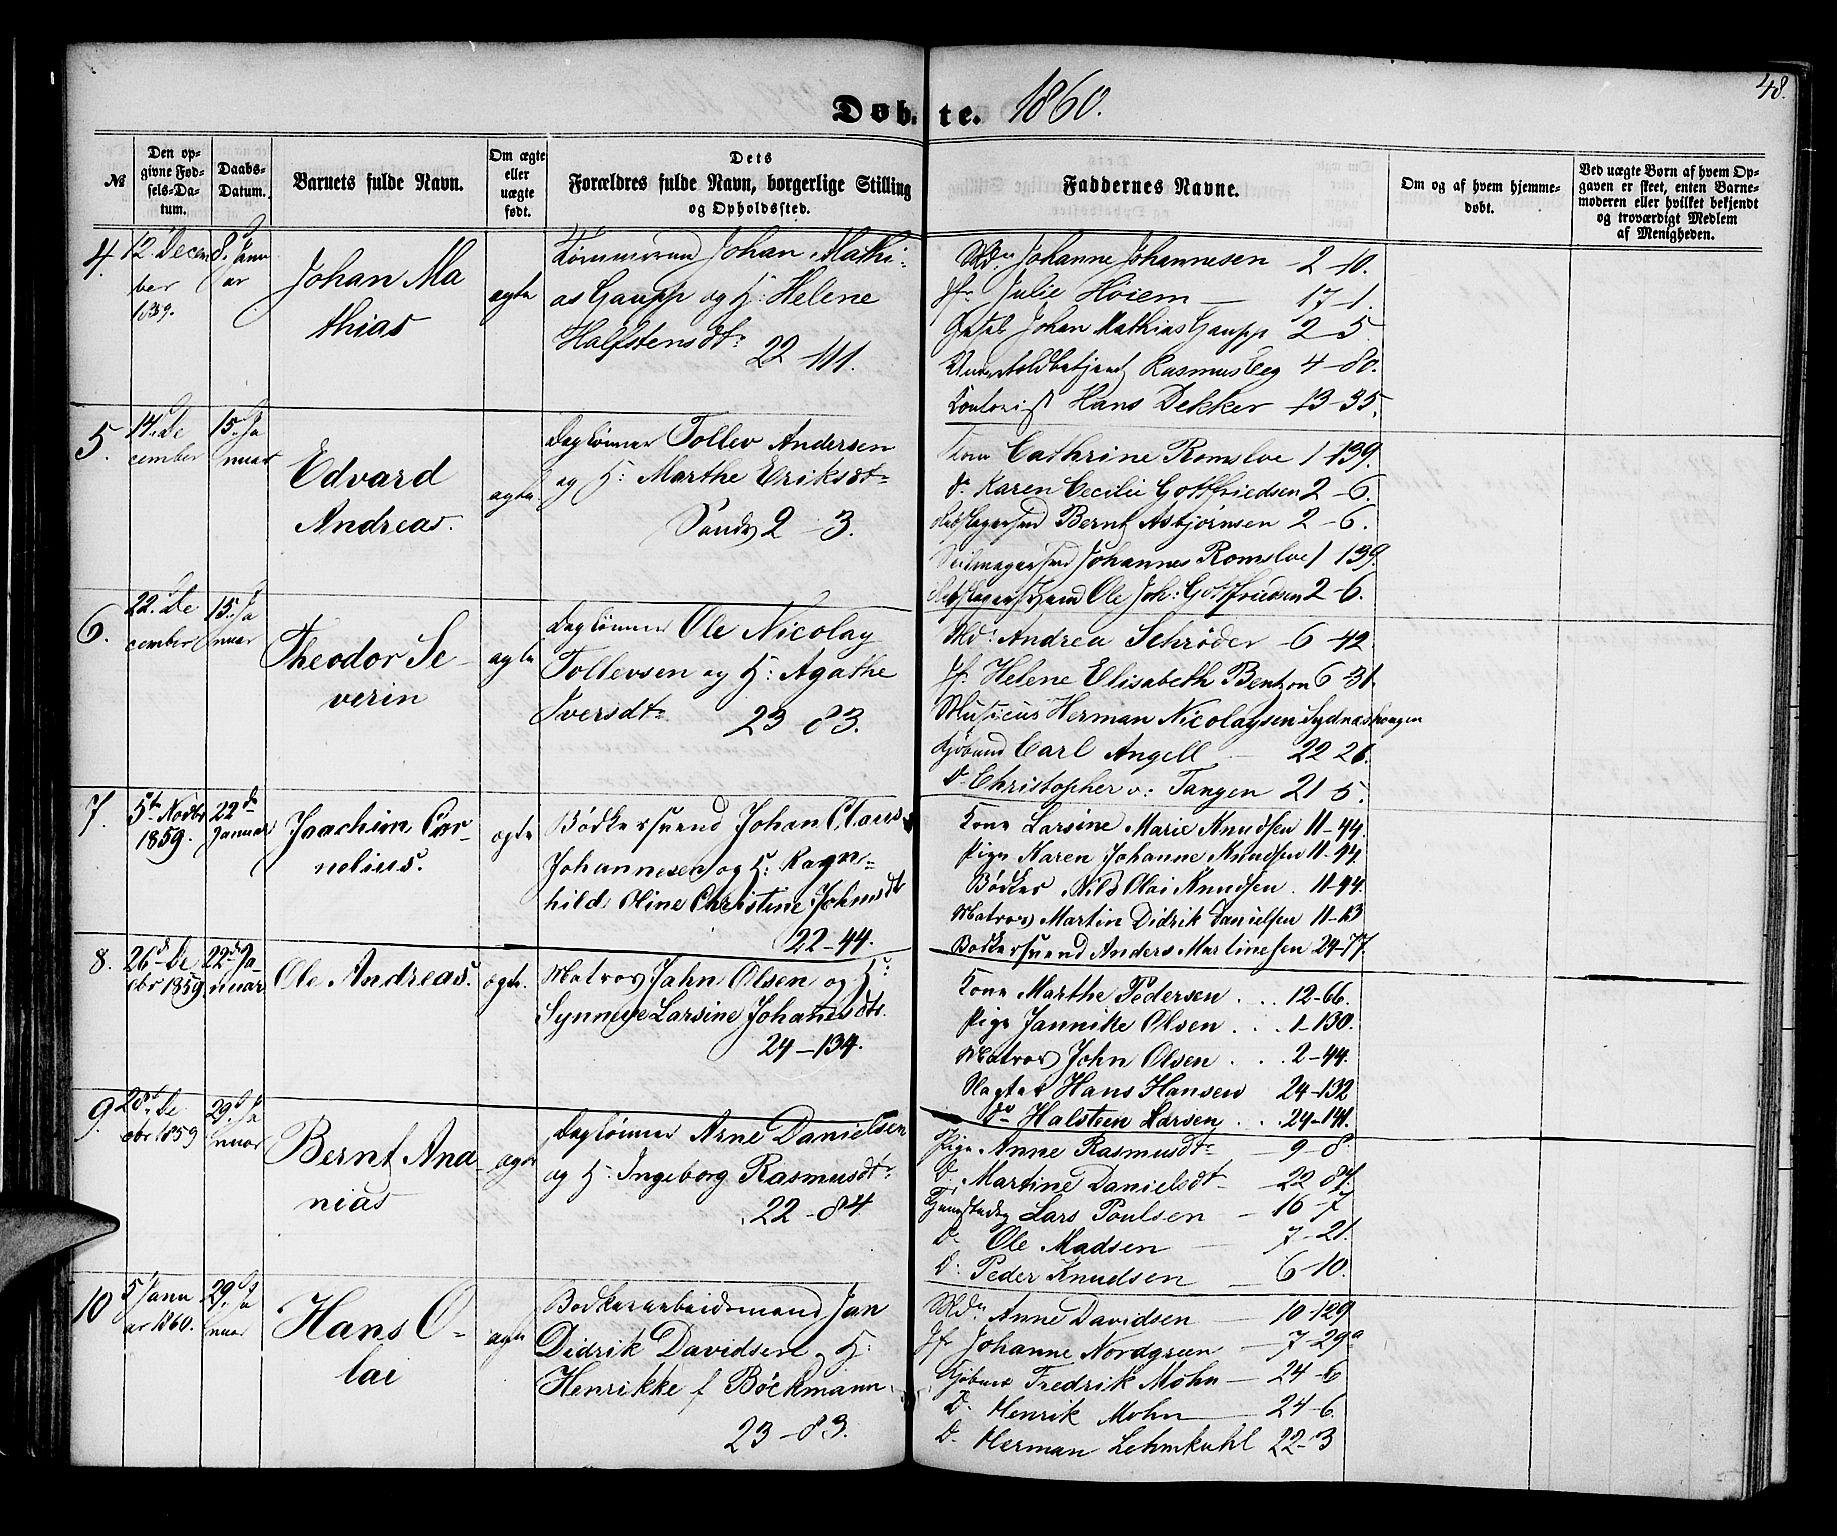 48.
Døbte. 1860.
№
Den opgivne Fødsels-Datum.
Daabs-Datum.
Barnets fulde Navn.
Om ægte eller uægte født.
Dets Forældres fulde Navn, borgerlige Stilling og Opholdssted.
Faddernes Navne.
Om og af hvem hjemmedøbt.
Ved uægte Børn af hvem Opgaven er skeet, enten Barnemoderen eller hvilket bekjendt og troværdigt Medlem af Menigheden.
4.
12. Decem
ber
1859.
8. Janu
ar
Johan Ma
thias
ægte
Johan Mathi-
as Gaupp og H: Helene
Halfstensdtr
22-111.
Md. Johanne Johannesen 2-10.
Jfr. Julie Høiem 17-1.
Johan Mathias Gaupp 2-5
Rasmus Eeg 4-80.
Contorist Hans Dekker 13-35.
5.
14. De
cember
15. Ja
nuar
Edvard
Andreas.
ægte
Daglønner Tollev Andersen
og H: Marthe Eriksdtr
2-3.
Kone Cathrine Romsloe 1-139.
do Karen Cecilie Gottfriedsen 2-6.
Bernt Asbjørnsen 2-6.
Seilmagersvend Johannes Romsloe 1-139.
Ole Joh: Gottfriedsen 2-6.
6.
22. De
cember
15. Ja
nuar
Theodor Se-
verin
ægte
Daglønner Ole Nicolay
Tollevsen og H: Agathe
Iversdtr 23-83.
Md: Andrea Schrøder 6-42
Jf. Helene Elisabeth Bentzon 6-31.
Musicus Herman Nicolaysen Sydneshougen
Kjøbmd Carl Angell 22-26.
do Christopher v: Tangen 21-5.
7.
5te Novbr
1859.
22de
Januar
Joachim Cor-
nelius.
ægte
Bødkersvend Johan Claus
Johannesen og H: Ragn-
hild Oline Christine Johnsdtr
22-44.
Kone Larsine Marie Knudsen 11-44.
Pige Karen Johanne Knudsen 11-44.
Bødker Nils Olai Knudsen. 11-44.
Matros Martin Didrik Danielsen 11-13
Bødkersvend Anders Martinesen 24-77.
8.
26de De
cbr 1859.
22de Ja-
nuar
Ole Andreas.
ægte.
Matros John Olsen og H:
Synneve Larsine Johanesdtr.
24-134.
Kone Marthe Pedersen . . . 12-66.
Pige Jannike Olsen . . . 1-130.
Matros John Olsen . . . 2-44.
Slagter Hans Hansen 24-132
do Halsteen Larsen . . . 24-141.
9.
28de De
cbr 1859
29de Ja
nuar
Bernt Ana
nias
ægte
Daglønner Arne Danielsen
og H: Ingeborg Rasmusdtr
22-84
Pige Anne Rasmusdtr 9-8.
do. Martine Danielsdtr 22-84.
Lars Poulsen 16-7
do Ole Madsen 7-21.
do: Peder Knudsen 6-10.
10
5 Janu
ar 1860.
29de Ja
nuar
Hans O-
lai
ægte
Bødkerarbeidsmand Jan
Didrik Davidsen og H:
Henrikke f Böckmann
23-83.
Md. Anne Davidsen 10-129
Jfr Johanne Nordgreen 7-29a
Kjøbmd Fredrik Mohn 24-6
do Henrik Mohn 24-6.
do Herman Lehmkuhl 22-3